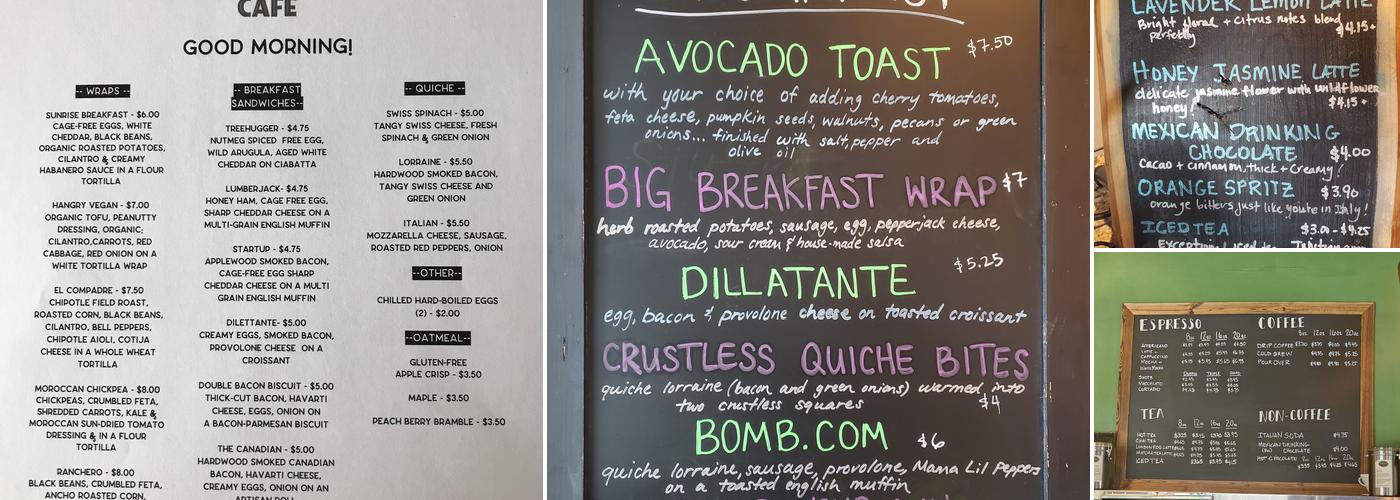 CAFE
GOOD MORNING!
-- WRAPS --
SUNRISE BREAKFAST - $6.00
CAGE-FREE EGGS, WHITE
CHEDDAR, BLACK BEANS,
ORGANIC ROASTED POTATOES,
CILANTRO & CREAMY
HABANERO SAUCE IN A FLOUR
TORTILLA
HANGRY VEGAN - $7.00
ORGANIC TOFU, PEANUTTY
DRESSING, ORGANIC;
CILANTRO,CARROTS, RED
CABBAGE, RED ONION ON A
WHITE TORTILLA WRAP
EL COMPADRE - $7.50
CHIPOTLE FIELD ROAST,
ROASTED CORN, BLACK BEANS,
CILANTRO, BELL PEPPERS,
CHIPOTLE AIOLI, COTIJA
CHEESE IN A WHOLE WHEAT
TORTILLA
MOROCCAN CHICKPEA - $8.00
CHICKPEAS, CRUMBLED FETA,
SHREDDED CARROTS, KALE &
MOROCCAN SUN-DRIED TOMATO
DRESSING & IN A FLOUR
TORTILLA
RANCHERO - $8.00
BLACK BEANS, CRUMBLED FETA,
ANCHO ROASTED CORN,
-- BREAKFAST
SANDWICHES--
TREEHUGGER - $4.75
NUTMEG SPICED FREE EGG,
WILD ARUGULA, AGED WHITE
CHEDDAR ON CIABATTA
LUMBERJACK- $4.75
HONEY HAM, CAGE FREE EGG,
SHARP CHEDDAR CHEESE ON A
MULTI-GRAIN ENGLISH MUFFIN
STARTUP - $4.75
APPLEWOOD SMOKED BACON,
CAGE-FREE EGG SHARP
CHEDDAR CHEESE ON A MULTI
GRAIN ENGLISH MUFFIN
DILETTANTE- $5.00
CREAMY EGGS, SMOKED BACON,
PROVOLONE CHEESE ON A
CROISSANT
DOUBLE BACON BISCUIT - $5.00
THICK-CUT BACON, HAVARTI
CHEESE, EGGS, ONION ON
A BACON-PARMESAN BISCUIT
THE CANADIAN - $5.00
HARDWOOD SMOKED CANADIAN
BACON, HAVARTI CHEESE,
CREAMY EGGS, ONION ON AN
ARTISAN ROLL
-- QUICHE --
SWISS SPINACH - $5.00
TANGY SWISS CHEESE, FRESH
SPINACH & GREEN ONION
LORRAINE - $5.50
HARDWOOD SMOKED BACON,
TANGY SWISS CHEESE AND
GREEN ONION
ITALIAN - $5.50
MOZZARELLA CHEESE, SAUSAGE,
ROASTED RED PEPPERS, ONION
--OTHER--
CHILLED HARD-BOILED EGGS
(2) - $2.00
--OATMEAL--
GLUTEN-FREE
APPLE CRISP - $3.50
MAPLE - $3.50
PEACH BERRY BRAMBLE - $3.50
AVOCADO TOAST $7.50
with your choice of adding cherry tomatoes,
feta cheese, pumpkin seeds, walnuts, pecans or green
onions... finished with salt, pepper and
olive oil
BIG BREAKFAST WRAP $7
herb roasted potatoes, sausage, egg, pepperjack cheese,
avocado, sour cream & house-made salsa
DILLATANTE $5.25
egg, bacon & provolone cheese on toasted croissant
CRUSTLESS QUICHE BITES
quiche lorraine (bacon and green onions) warmed into
two crustless squares $4
BOMB.COM $6
quiche lorraine, sausage, provolone, Mama Lil Peppers
on a toasted english muffin
LAVENDER LEMON LATTE
Bright floral + citrus notes blend
perfectly $4.15+
HONEY JASMINE LATTE
delicate jasmine flower with wildflower
honey! $4.15+
MEXICAN DRINKING
CHOCOLATE $4.00
Cacao + cinnamon, thick + creamy!
ORANGE SPRITZ $3.90
orange bitters just like you're in Italy!
ICED TEA $3.00 - $4.25
ESPRESSO
8oz 12oz 16oz 20oz
AMERICANO
LATTE
CAPPUCCINO
MOCHA
SHOTS
MACCHIATO
CORTADO
COFFEE
8oz 12oz 16oz 20oz
DRIP COFFEE
COLD BREW
POUR OVER
TEA
8oz 12oz 16oz 20oz
HOT TEA
CHAI TEA
LONDON FOG LATTE
MATCHA TEA LATTE
ICED TEA
NON-COFFEE
ITALIAN SODA $4.75
MEXICAN DRINKING
CHOCOLATE $4.00
HOT CHOCOLATE